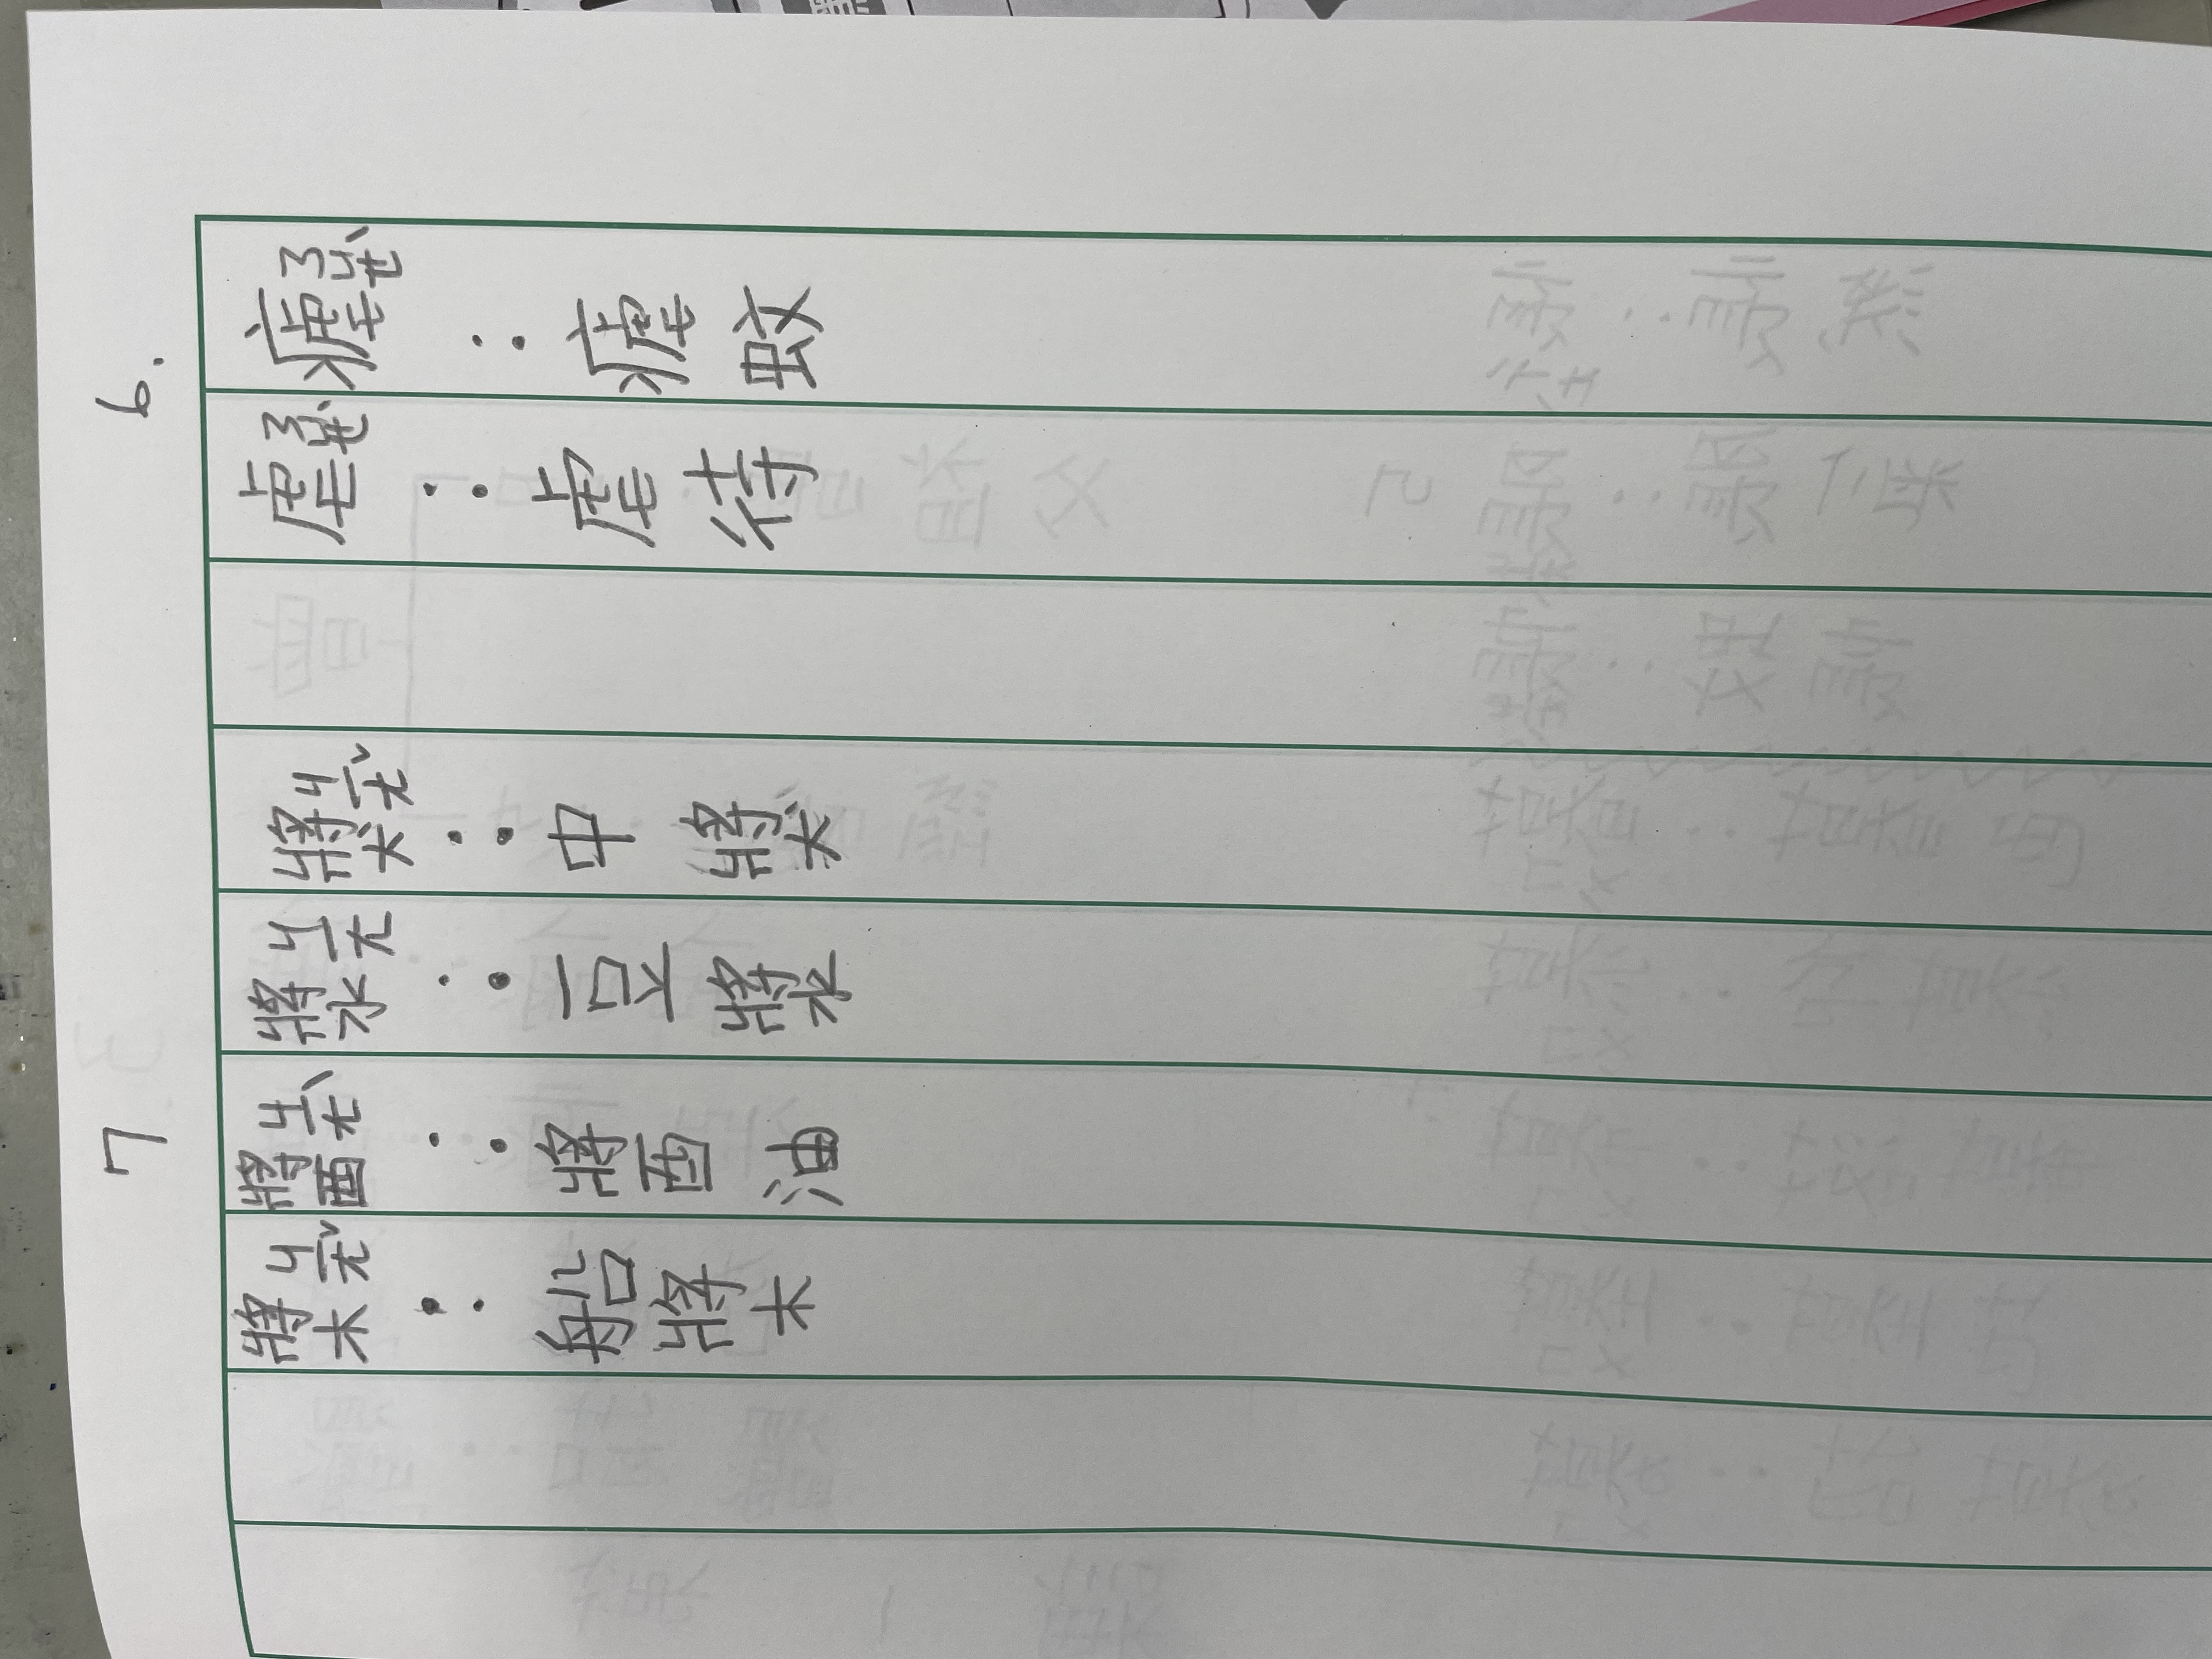 6.
瘧ㄋㄩㄝˋ：瘧蚊
虐ㄋㄩㄝˋ：虐待
7
獎ㄐㄧㄤˇ：中獎
漿ㄐㄧㄤ：豆漿
醬ㄐㄧㄤˋ：醬油
槳ㄐㄧㄤˇ：船槳